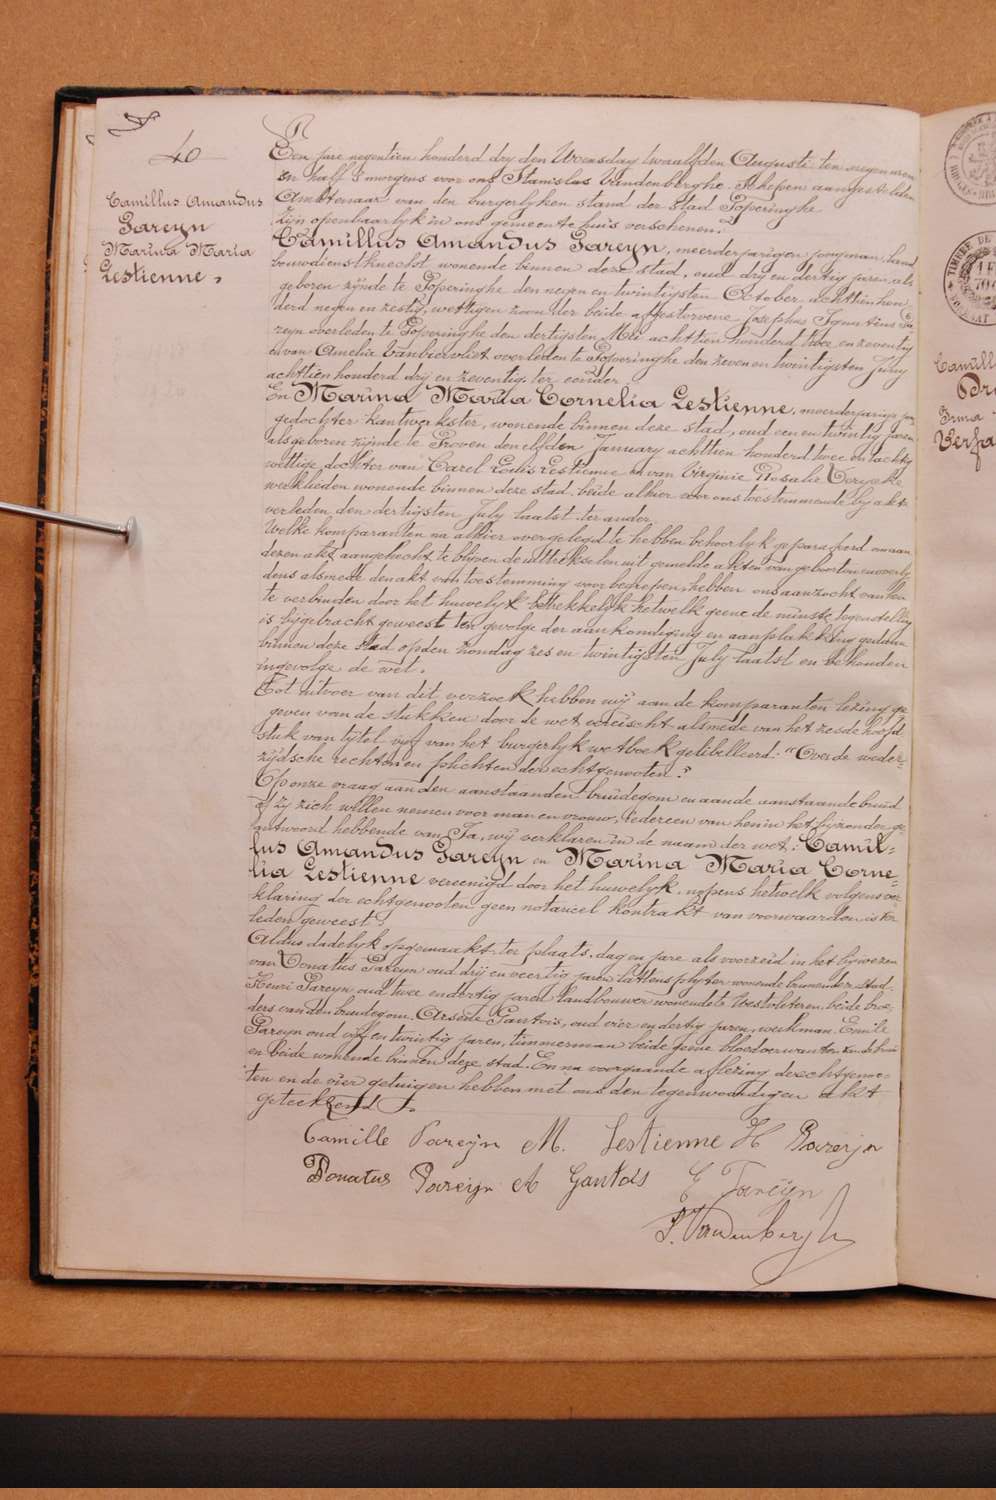 40
Camillus Amandus
Pareyn
Marina Maria
Lestienne,
Een jare negentien honderd dry den Woensdag twaalfden Augusti ten negen uren
en half 's morgens voor ons Stanislas Vandenberghe, Schepen aangestelden
Ambtenaar van den burgerlyken stand der stad Poperinghe
zyn openbaarlyk in ons gemeente huis verschenen:
Camillus Amandus Pareyn, meerderjarigen jongman, land
bouwdienstknecht wonende binnen deze stad, oud dry en dertig jaren als
geboren zijnde te Poperinghe den negen en twintigsten October achttien hon
derd negen en zestig, wettigen zoon der beide afgestorvene Josephus Ignatius Pa
reyn overleden te Poperinghe den dertigsten Mei achttien honderd twee en zeventig
en van Amelia Vanbiervliet overleden te Poperinghe den zeven en twintigsten Juny
achttien honderd drij en zeventig, ter eender
En Marina Maria Cornelia Lestienne, meerderjarige jon
gedochter kantwerkster, wonende binnen deze stad, oud een en twintig jaren
als geboren zijnde te Proven den elfden January achttien honderd twee en tachtig
wettige dochter van Carel Louis Lestienne en van Virginie Rosalie
werklieden wonende binnen deze stad beide alhier voor ons toestemmende by akt
verleden den dertigsten July laatst ter ander
Welke komparanten na alhier overgelegd te hebben behoorlyk geparafeerd om aan
dezen akt aangehecht te blyven de uittreksels uit gemelde akten van geboorten en overly
dens alsmede den akt van toestemming voorbedregen, hebben ons aanzocht van hen
te verbinden door het huwelyk betrekkelyk hetwelk geene de minste tegenstelling
is bijgebracht geweest ten gevolge der aankondiging en aanplakking gedaan
binnen deze stad op den zondag zes en twintigsten July laatst en behouden
ingevolge de wet.
Tot uitvoer van dit verzoek hebben wij aan de komparanten lezing ge
geven van de stukken door de wet vereischt alsmede van het zesde hoofd
stuk van tytel vyf van het burgerlyk wetboek gelibelleerd: "Over de weder=
zijdsche rechten en plichten der echtgenooten."
Op onze vraag aan den aanstaanden bruidegom en aan de aanstaande bruid
of zy zich willen nemen voor man en vrouw, iedereen van hen in het bijzonder ge
antwoord hebbende van Ja, wij verklaren in de naam der wet: Camil=
lus Amandus Pareyn en Marina Maria Corne=
lia Lestienne vereenigd door het huwelyk nopens hetwelk volgens ver
klaring der echtgenooten geen notarieel kontrakt van voorwaarden is ver
leden geweest.
Aldus dadelyk opgemaakt ter plaats, dag en jare als voorzeid in het bywezen
van Donatus Pareyn oud drij en veertig jaren lattensplyter wonende binnen der stad
Henri Pareyn oud twee en dertig jaren landbouwer wonende te Westvleteren, beide broe,
ders van den bruidegom, Arsène Gantois, oud vier en dertig jaren, werkman, Emile
Pareyn oud vijf en twintig jaren, timmerman beide geene bloedverwanten van de brui
en beide wonende binnen deze stad. En na voorgaande aflezing de echtgenoo=
ten en de vier getuigen hebben met ons den tegenwoordigen akt
geteekend
Camille Pareyn M. Lestienne H Pareyn
Donatus Pareyn A Gantois E Pareyn
S. Vandenbergh
TIMBRE DE
Camill
Irma
Verfa